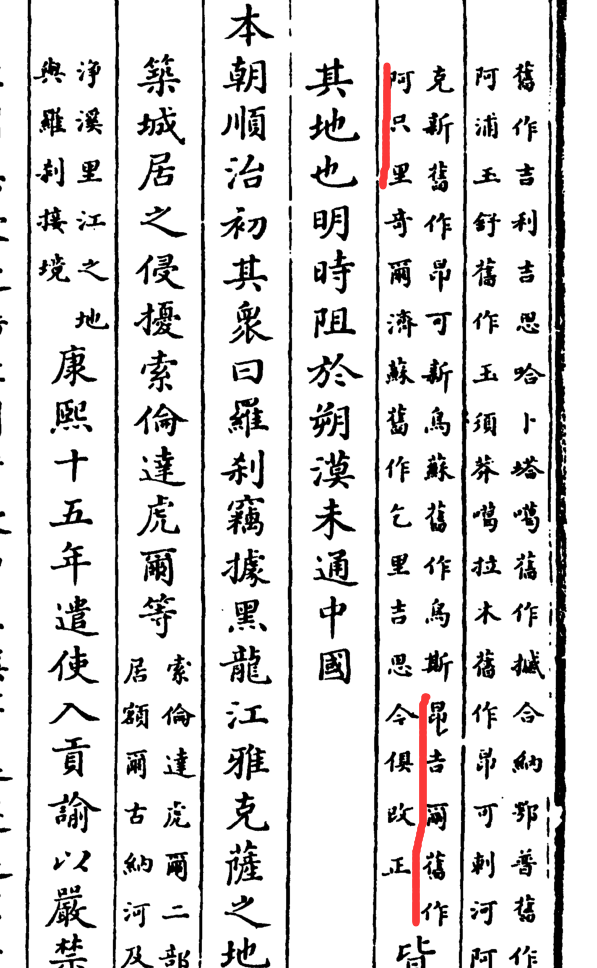 舊作吉利吉思哈卜塔噶舊作撼合納鄂普舊作
阿浦玉舒舊作玉須莽噶拉木舊作昂可剌河阿
克新舊作昂可新烏蘇舊作烏斯昂吉爾舊作
阿只里奇爾濟蘇舊作乞里吉思今俱改正
皆
其地也明時阻於朔漠未通中國
本朝順治初其衆曰羅刹竊據黑龍江雅克薩之地
築城居之侵擾索倫達虎爾等
索倫達虎爾二部
居額爾古納河及
淨溪里江之地
與羅刹接境
康熙十五年遣使入貢諭以嚴禁